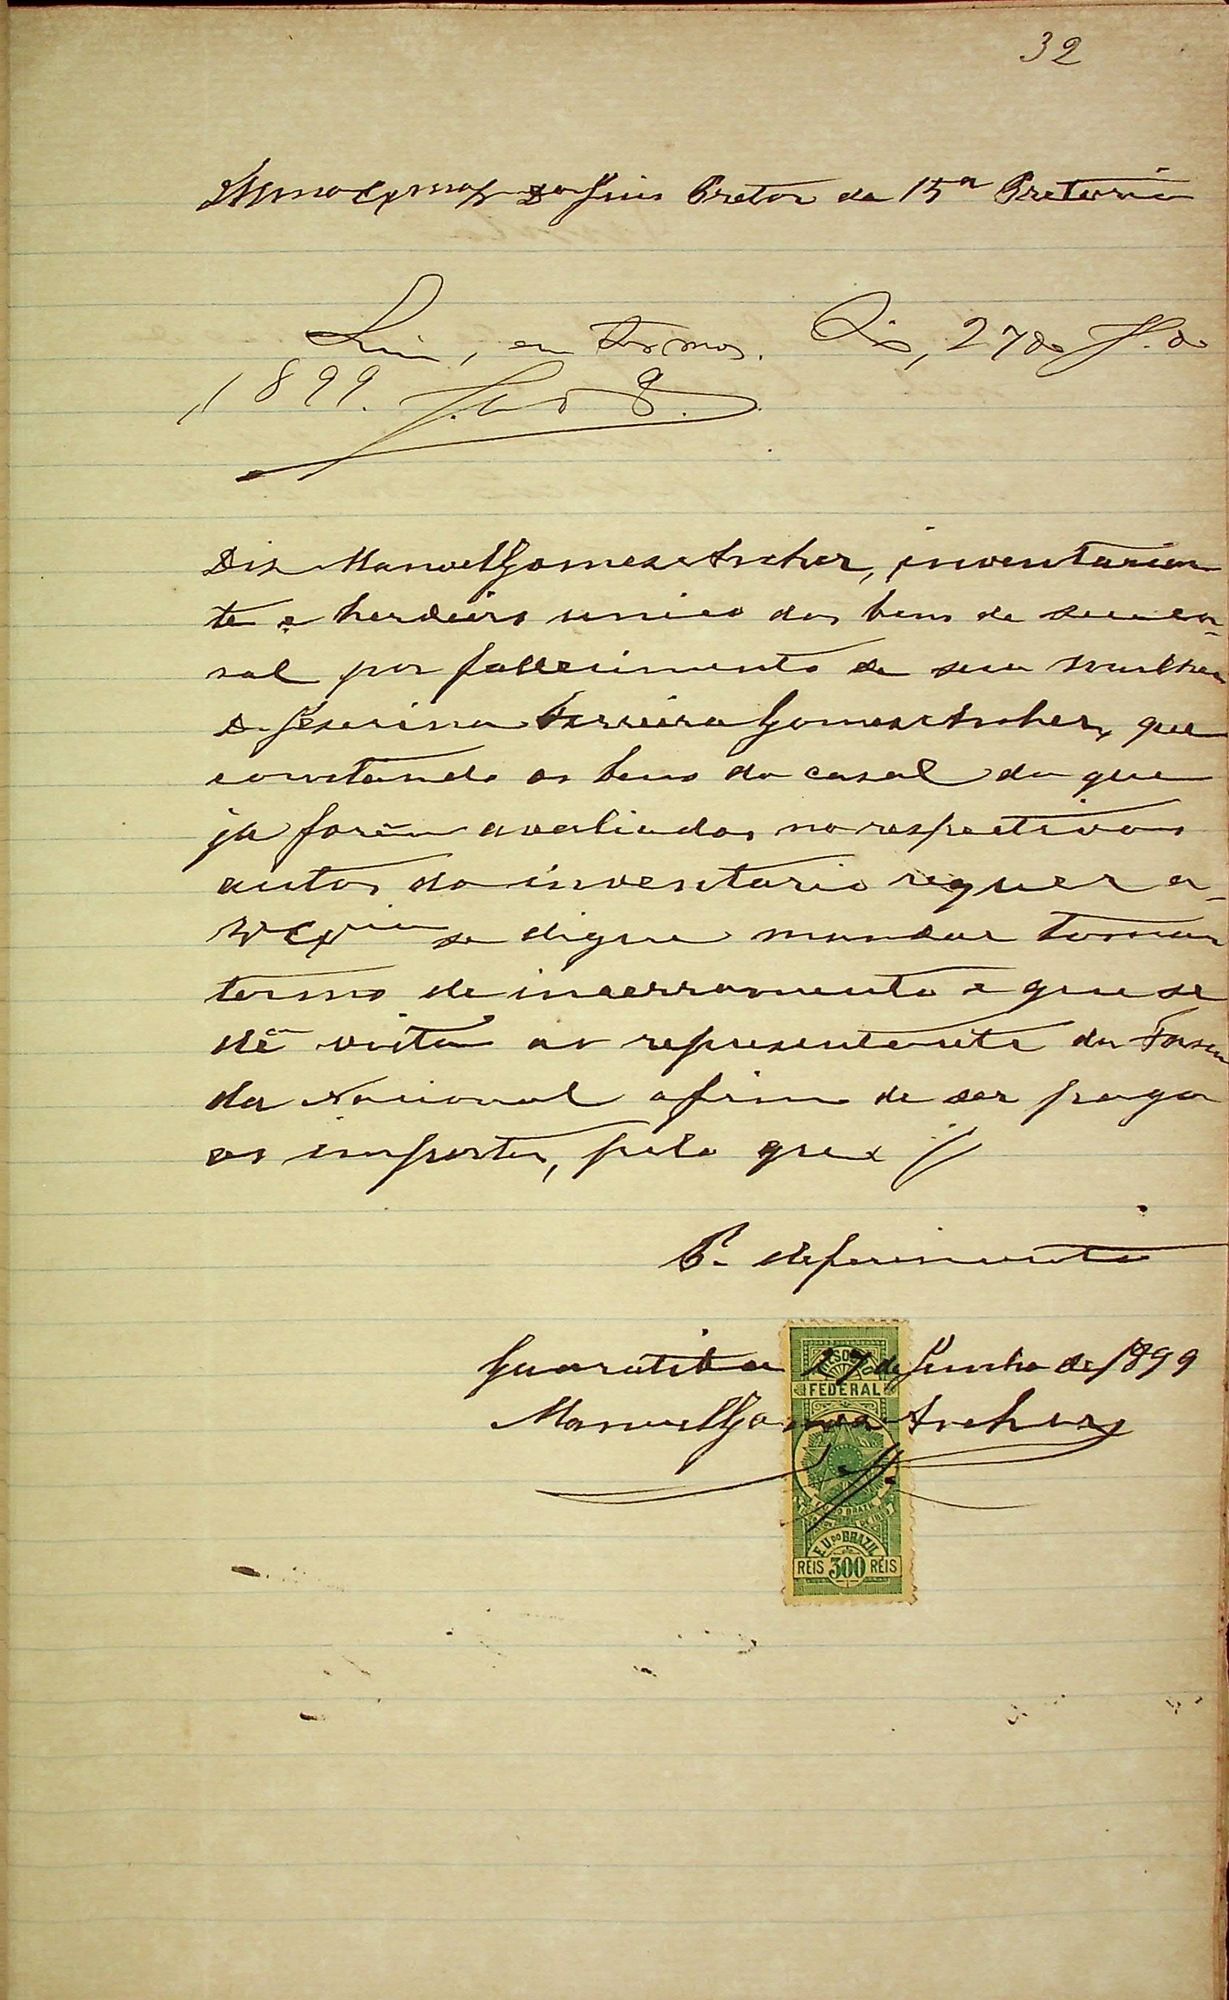 32
Illmo Exmo Sr Dor Juis Pretor da 15ª Pretoria
Sim, em termos. Rio, 27 de J. de
1899.
Dis Manoel Gomes Archer, inventarian
te e herdeiro unico dos bens de seu ca-
sal por fallecimento de sua mulher
D. Ferreira Gomes Archer, que
constando os bens do casal do que
ja forão avaliados no respectivos
autos do inventario requer a
V Excia se digne mandar tomar
termo de incerramento e que se
dê vista ao representante da Fasen
da Nacional afim de ser pago
os imposto, pelo que
P. deferimento
Guaratiba 27 de Junho de 1899
Manoel Gomes Archer
THESOURO
FEDERAL
E U DO BRAZIL
REIS 300 REIS